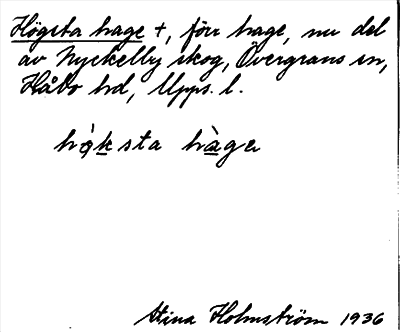 Högsta hage +, förr hage, nu del
av Nyckelby skog, Övergrans sn,
Håbo hd, Upps. l.
hǿksta hàgɐ
Stina Holmström 1936